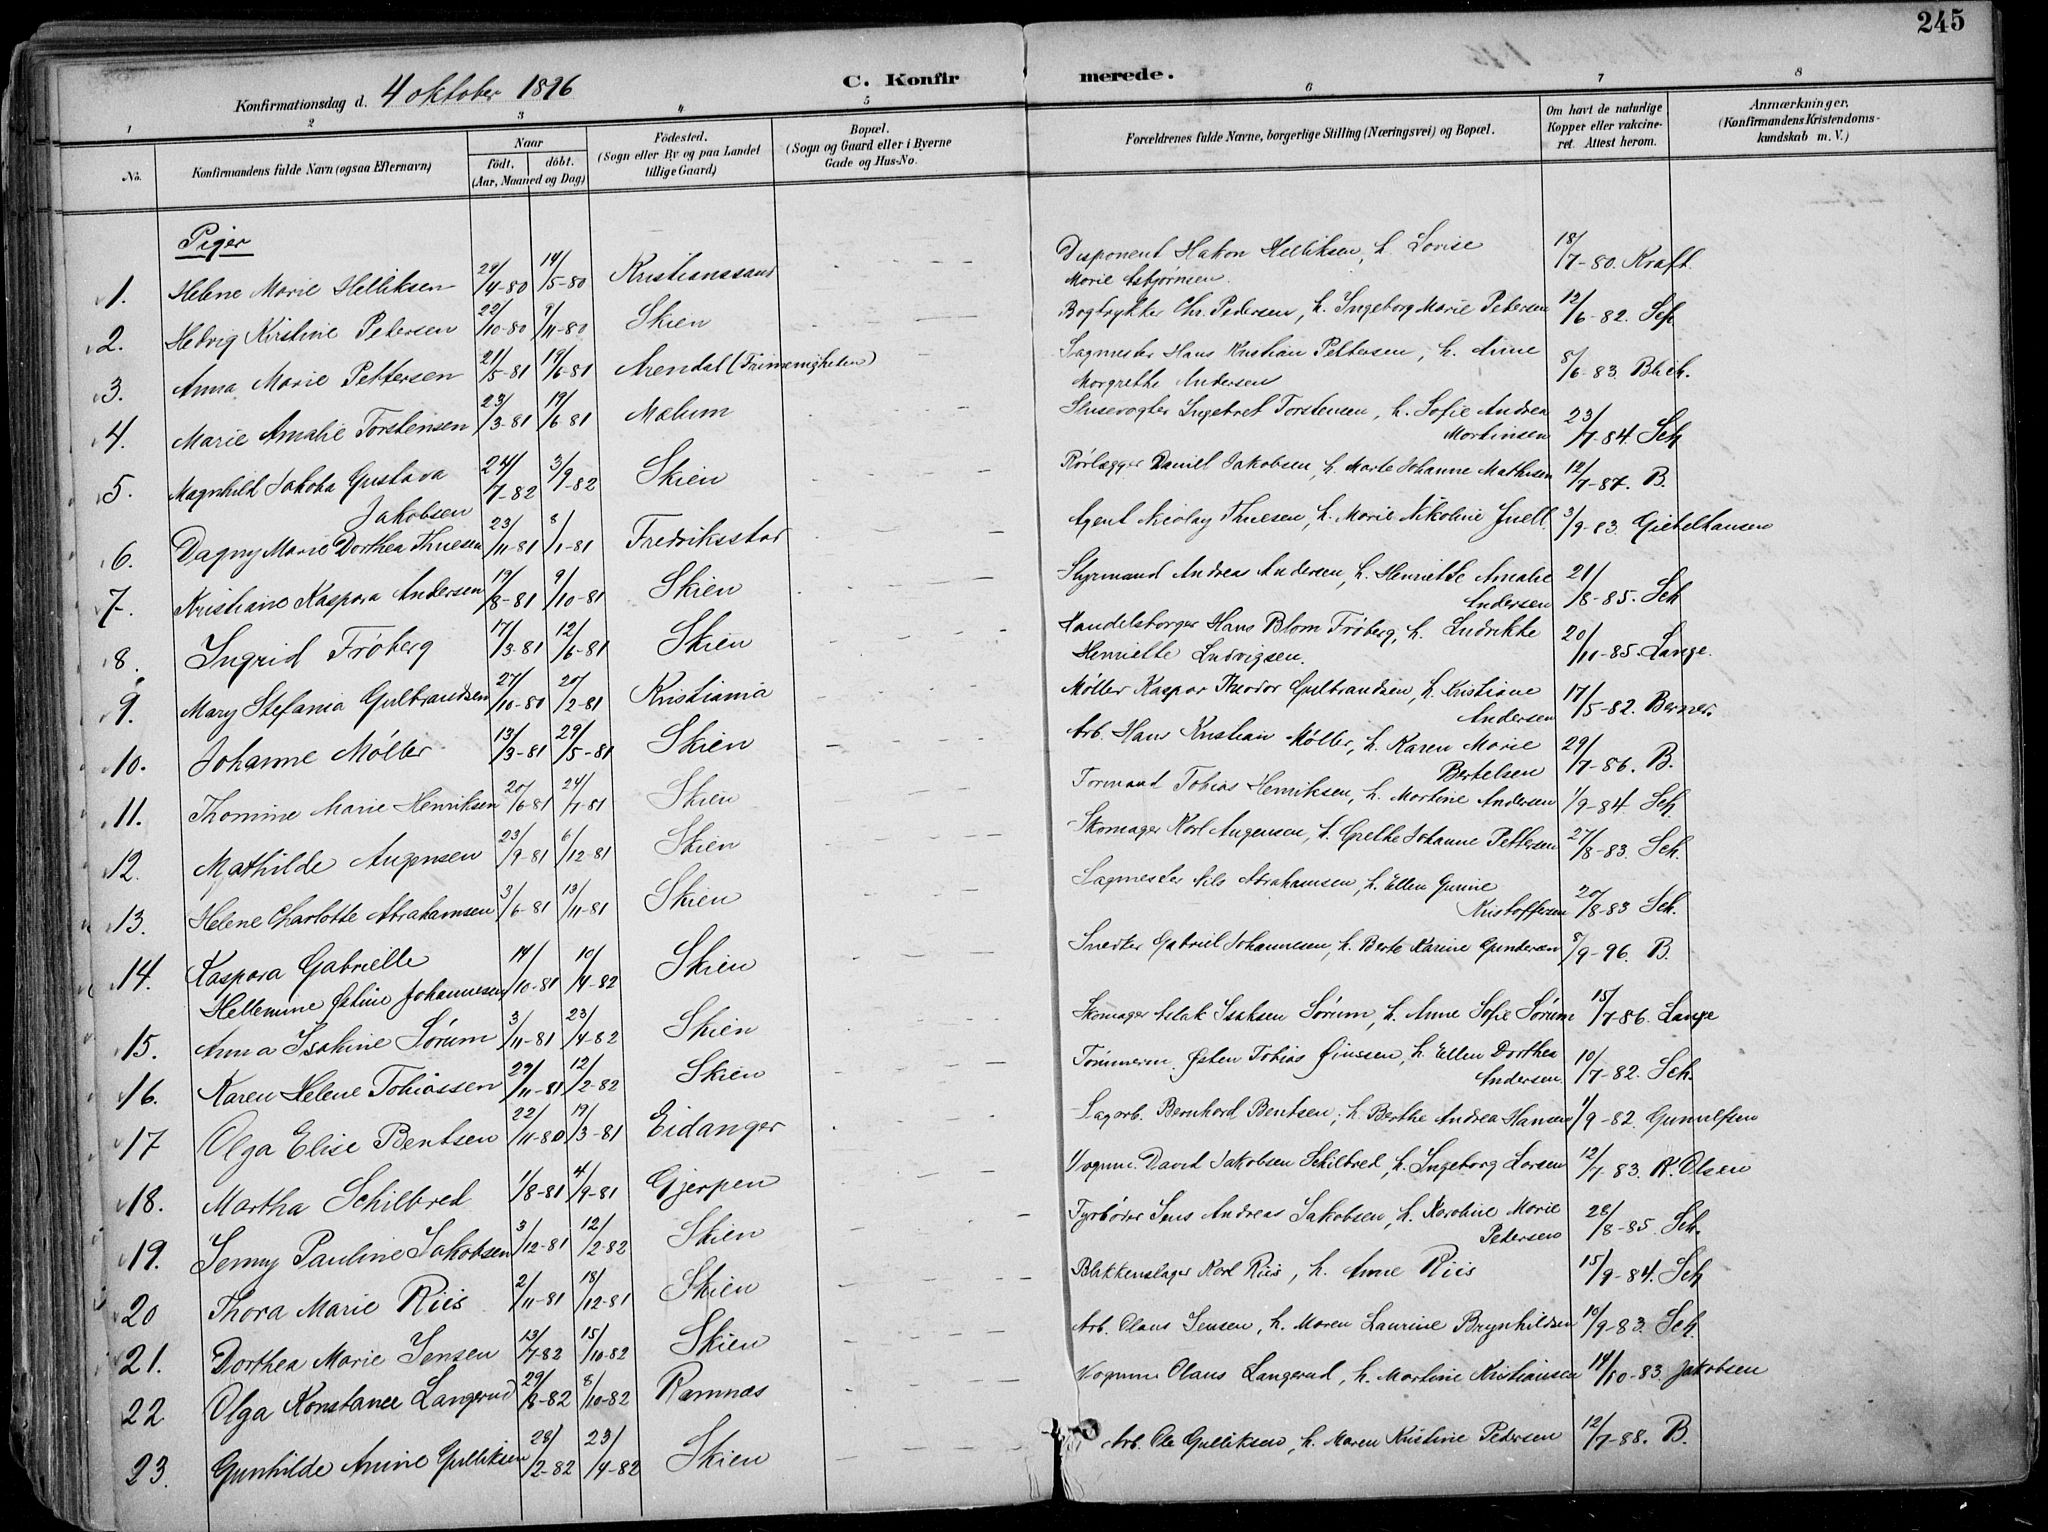 245
Konfirmationsdag d. 4 oktober 1896
C. Konfirmerede.
1 2 3 4 5 6 7 8
No. Konfirmandens fulde Navn (ogsaa Efternavn) Naar født, døbt. (Aar, Maaned og Dag) Fødested. (Sogn eller By og paa Landet tillige Gaard) Bopæl. (Sogn og Gaard eller i Byerne Gade og Hus-No. Forældrenes fulde Navne, borgerlige Stilling (Næringsvei) og Bopæl. Om havt de naturlige Kopper eller vakcineret. Attest herom. Anmærkninger, (Konfirmandens Kristendomskundskab m. V.)
Piger
1. Helene Marie Helliksen 29/4-80 14/5-80 Kristianssand Disponent Hakon Helliksen, h. Lovise Marie Asbjørnsen 18/7-80. Kraft.
2. Hedvig Kirstine Petersen 22/10-80 9/11-80 Skien Bogtrykker Chr. Pedersen, h. Ingeborg Marie Petersen 12/6-82. Sch
3. Anna Marie Pettersen 21/5-81 19/6-81 Arendal (Frimenigheden) Sagmester Hans Kristian Pettersen, h. Anne Margrethe Andersen 8/6-83. Blich.
4. Marie Amalie Torstensen 23/3-81 19/6-81 Mælum Slusevogter Ingebret Torstensen, h. Sofie Andrea Martinsen 23/7-84. Sch
5. Magnhild Jakoba Gustava Jakobsen 24/7-82 3/9-82 Skien Rørlægger Daniel Jakobsen, h. Marte Johanne Mathisen 12/7-87. B.
6. Dagny Marie Dorthea Thuesen 23/11-81 8/1-81 Fredriksstad Agent Nicolay Thuesen, h. Marie Nikoline Juell 3/9-83. Giebelhausen
7. Kristiane Kaspara Andersen 19/8-81 9/10-81 Skien Styrmand Andreas Andersen, h. Henriette Amalie Andersen 21/8-85. Sch
8. Ingrid Frøberg 17/3-81 12/6-81 Skien Handelsborger Hans Blom Frøberg, h. Ludvikke Henriette Ludvigsen. 20/11-85. Lange.
9. Mary Stefania Gulbrandsen 27/10-80 20/2-81 Kristiania Møller Kaspar Theodor Gulbrandsen, h. Kristiane Andersen 17/5-82. Berner.
10. Johanne Møller 13/3-81 29/5-81 Skien Arb. Hans Kristian Møller, h. Karen Marie Bertelsen 29/7-86. B.
11. Thomine Marie Henriksen 20/6-81 24/7-81 Skien Formand Tobias Henriksen, h. Martine Andersen 1/9-84 Sch.
12. Mathilde Augensen 23/9-81 6/12-81 Skien Skomager Karl Augensen, h. Grethe Johanne Pettersen 27/8-83. Sch.
13. Helene Charlotte Abrahamsen 3/6-81 13/11-81 Skien Sagmester Nils Abrahamsen, h. Ellen Gurine Kristoffersen 20/8-83 Sch.
14. Kaspara Gabrielle Hellemine Østine Johannesen 14/10-81 10/4-82 Skien Snedker Gabriel Johannesen, h. Berte Karine Gundersen 8/9-96. B.
15. Anna Isakine Sørum 3/11-81 23/4-82 Skien Skomager Aslak Isaksen Sørum, h. Anne Sofie Sørum 15/7-86. Lange
16. Karen Helene Tobiassen 29/11-81 12/2-82 Skien Tømmerm. Østen Tobias Jinssen, h. Ellen Dorthea Andersen. 10/7-82. Sch.
17 Olga Elise Bentsen 22/11-80 19/3-81 Eidanger Sagarb. Bernhard Bentsen, h. Berthe Andrea Hansen 1/9-82. Gunnulfsen
18. Martha Schilbred 1/8-81 4/9-81 Gjerpen Vognm. David Jakobsen Schilbred, h. Ingeborg Larsen 12/7-83. K. Olsen
19. Jenny Pauline Jakobsen 3/12-81 12/2-82 Skien Fyrbøder Jens Andreas Jakobsen, h. Karoline Marie Pedersen 28/8-85. Sch.
20 Thora Marie Riis 2/11-81 18/12-81 Skien Blikkenslager Karl Riis, h. Anne Riis 15/9-84. Sch
21. Dorthea Marie Jensen 13/7-82 15/10-82 Skien Arb. Olaus Jensen, h. Maren Laurine Brynhildsen 10/9-83. Sch.
22 Olga Konstance Langerud 29/8-82 8/10-82 Ramnæs Vognm. Olaus Langerud, h. Martine Kristiansen 14/10-83. Jakobsen
23. Gunhilde Anine Gulliksen 28/2-82 23/4-82 Skien Arb. Ole Gulliksen, h. Maren Kristine Pedersen 12/7-88. B.